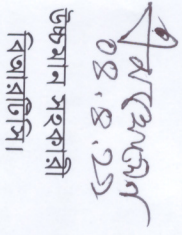 ০৪.৪.২১
উচ্চমান সহকারী
বিআরটিসি।